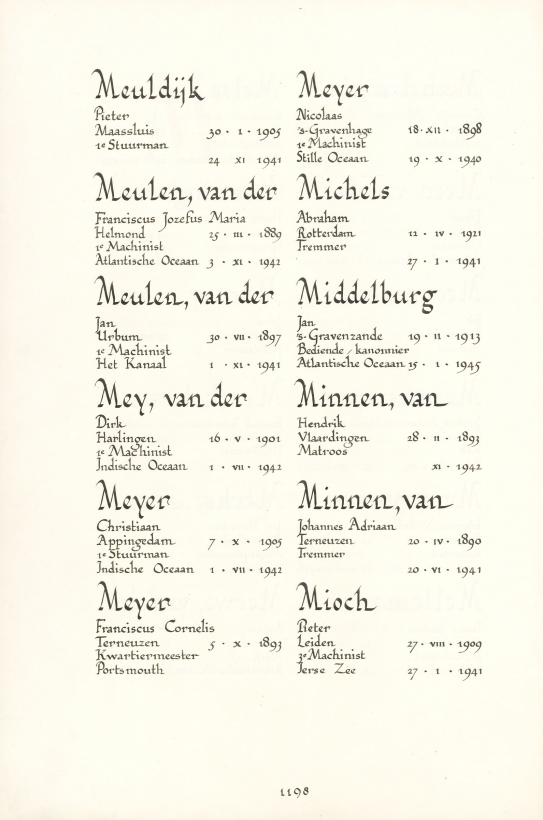 Meuldijk
Pieter
Maassluis 30 · 1 · 1905
1e Stuurman
24 XI 1941
Meulen, van der
Franciscus Jozefus Maria
Helmond 25 · III · 1889
1e Machinist
Atlantische Oceaan 3 · XI · 1942
Meulen, van der
Jan
Urbum 30 · VII · 1897
1e Machinist
Het Kanaal 1 · XI · 1941
Mey, van der
Dirk
Harlingen 16 · V · 1901
1e Machinist
Indische Oceaan 1 · VII · 1942
Meyer
Christiaan
Appingedam 7 · X · 1905
1e Stuurman
Indische Oceaan 1 · VII · 1942
Meyer
Franciscus Cornelis
Terneuzen 5 · X · 1893
Kwartiermeester
Portsmouth
Meyer
Nicolaas
's-Gravenhage 18 · XII · 1898
1e Machinist
Stille Oceaan 19 · X · 1940
Michels
Abraham
Rotterdam 12 · IV · 1921
Tremmer
27 · 1 · 1941
Middelburg
Jan
's-Gravenzande 19 · II · 1913
Bediende / kanonnier
Atlantische Oceaan 15 · 1 · 1945
Minnen, van
Hendrik
Vlaardingen 28 · II · 1893
Matroos
XI · 1942
Minnen, van
Johannes Adriaan
Terneuzen 20 · IV · 1890
Tremmer
20 · VI · 1941
Mioch
Pieter
Leiden 27 · VIII · 1909
3e Machinist
Ierse Zee 27 · 1 · 1941
1198